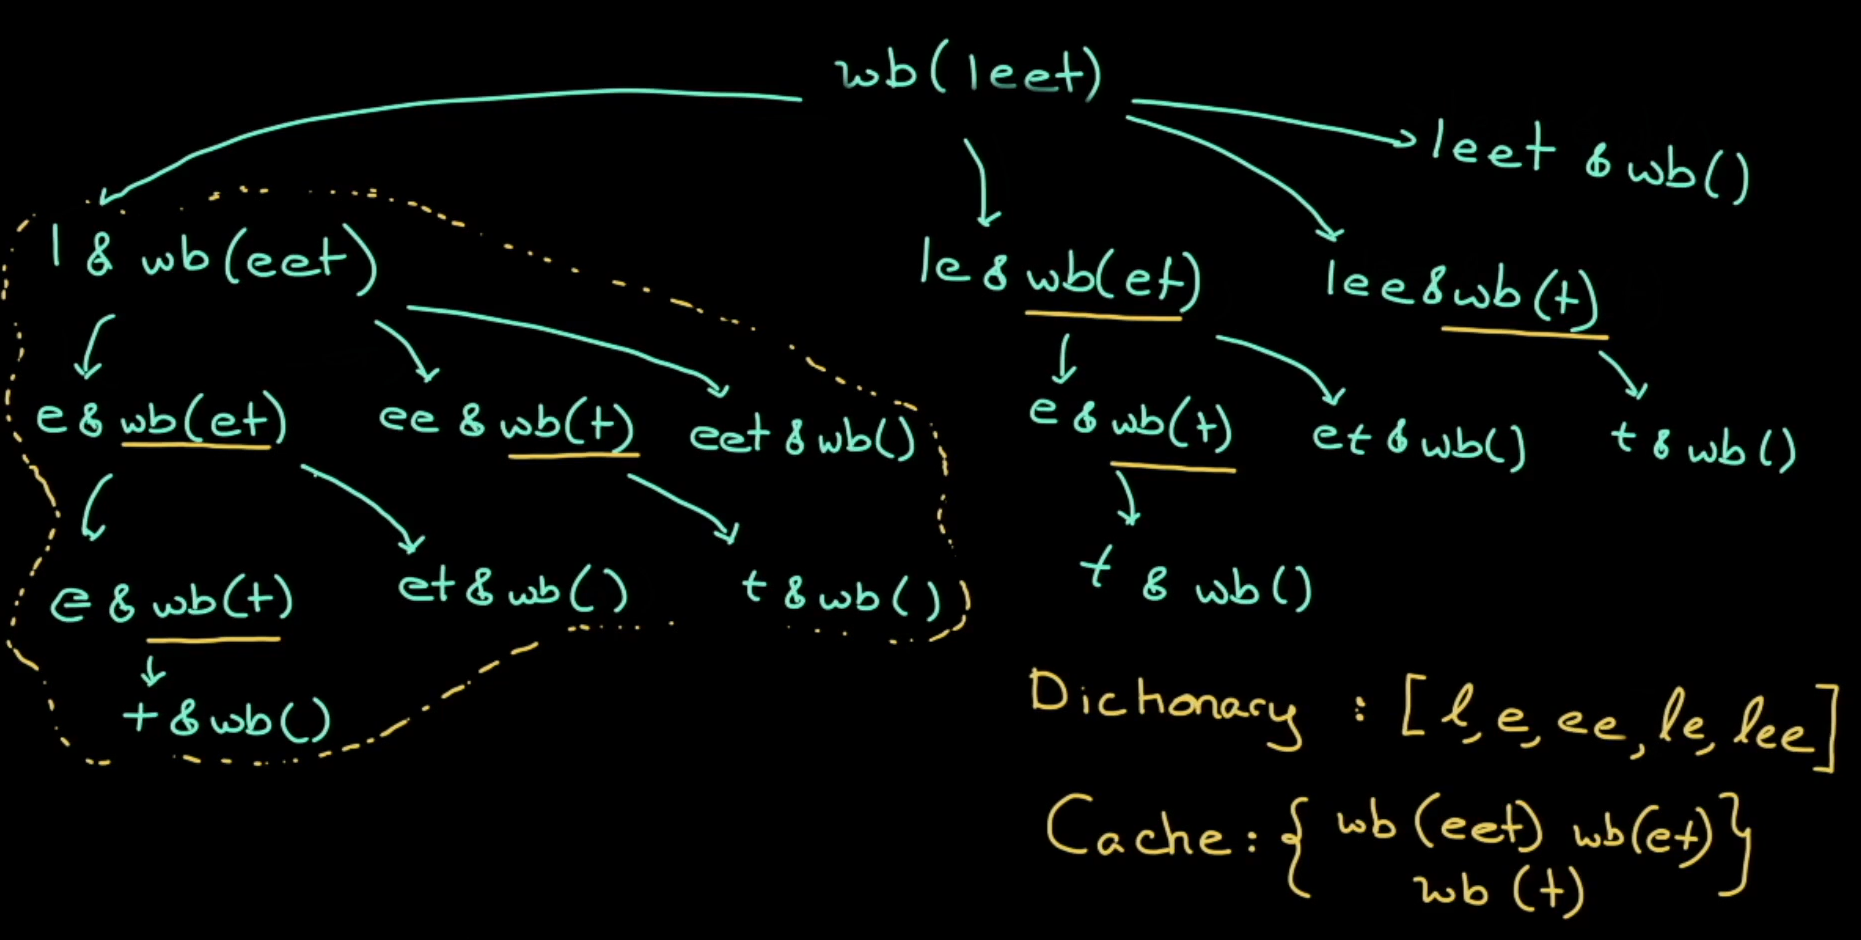 wb(leet)
leet & wb()
l & wb(eet)
le & wb(et)
lee & wb(t)
e & wb(et)
ee & wb(t)
eet & wb()
e & wb(t)
et & wb()
t & wb()
e & wb(t)
et & wb()
t & wb()
t & wb()
t & wb()
Dictionary : [l, e, ee, le, lee]
Cache : { wb(eet) wb(et) }
wb(t)